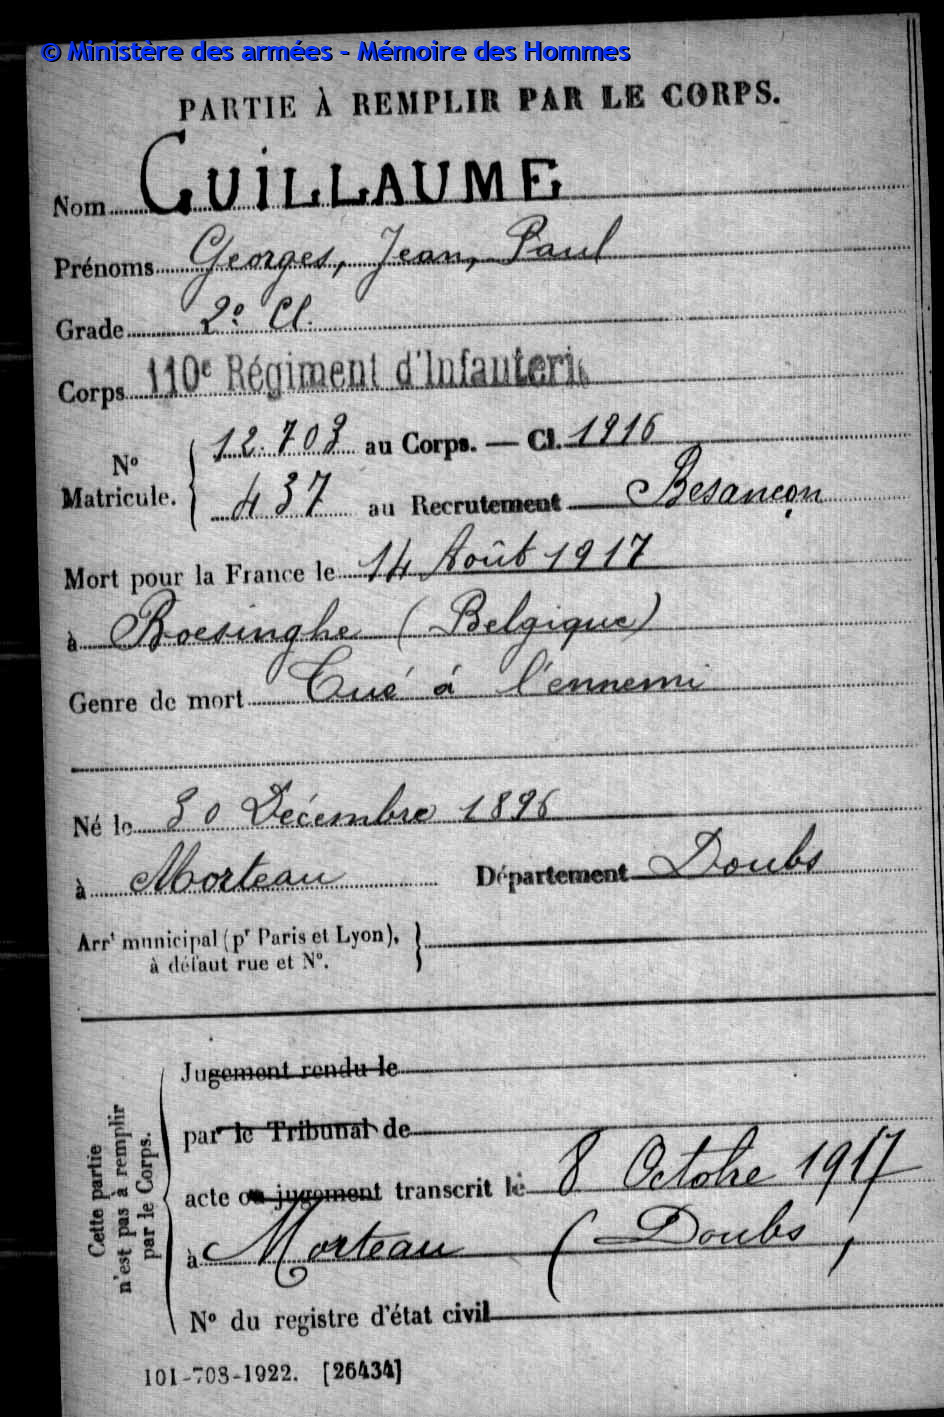 © Ministère des armées - Mémoire des Hommes
PARTIE À REMPLIR PAR LE CORPS.
Nom GUILLAUME
Prénoms Georges, Jean, Paul
Grade 2e Cl.
Corps 110e Régiment d'Infanterie
N° Matricule. { 12.703 au Corps. — Cl. 1916
437 au Recrutement Besançon
Mort pour la France le 14 Août 1917
à Boesinghe (Belgique)
Genre de mort Tué à l'ennemi
Né le 30 Décembre 1896
à Morteau Département Doubs
Arrt municipal (pr Paris et Lyon), }
à défaut rue et N°.
Cette partie
n'est pas à remplir
par le Corps.
Jugement rendu le
par le Tribunal de
acte ou jugement transcrit le 8 Octobre 1917
à Morteau (Doubs)
N° du registre d'état civil
101-708-1922. [26434]